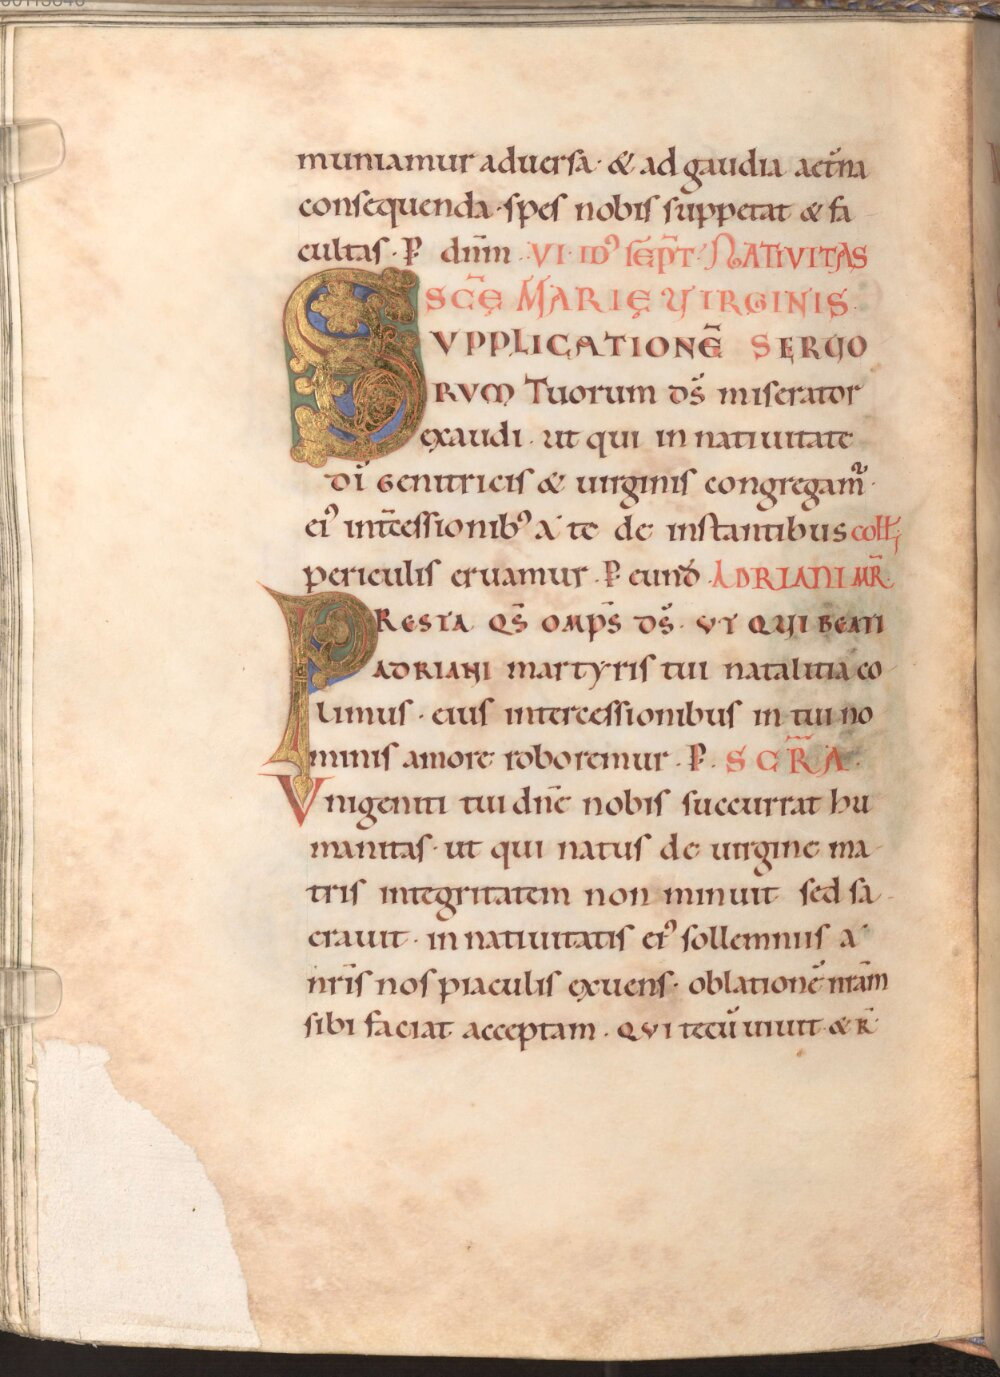 muniamur aduersa · & ad gaudia aet̄na
consequenda · spes nobis suppetat & fa
cultas · P̄ dn̄m · VI · ID᾿ SEPT̄ · NATIVITAS
SC̄Ę MARIĘ VIRGINIS ·
SVPPLICATIONĒ SERUO
RVM Tuorum dS̄ miserator
exaudi · ut qui in natiuitate
dī Genitricis & uirginis congregam̄ ·
ei᾿ int̄cessionib᾿ a te de instantibus coll̄
periculis eruamur · P̄ eund̄ · ADRIANI MR̄ ·
PRESTA QS̄ OMPS̄ DS̄ · VT QUI BEATI
ADRIANI martyris tui natalitia co
limus · eius intercessionibus in tui no
minis amore roboremur · P̄ · SECR̄A ·
Vnigeniti tui dn̄e nobis succurrat hu
manitas · ut qui natus de uirgine ma
tris integritatem non minuit sed sa
crauit · in natiuitatis ei᾿ sollemniis a
nr̄is nos piaculis exuens · oblationē nr̄am
sibi faciat acceptam · QVI tecū uiuit & R̄